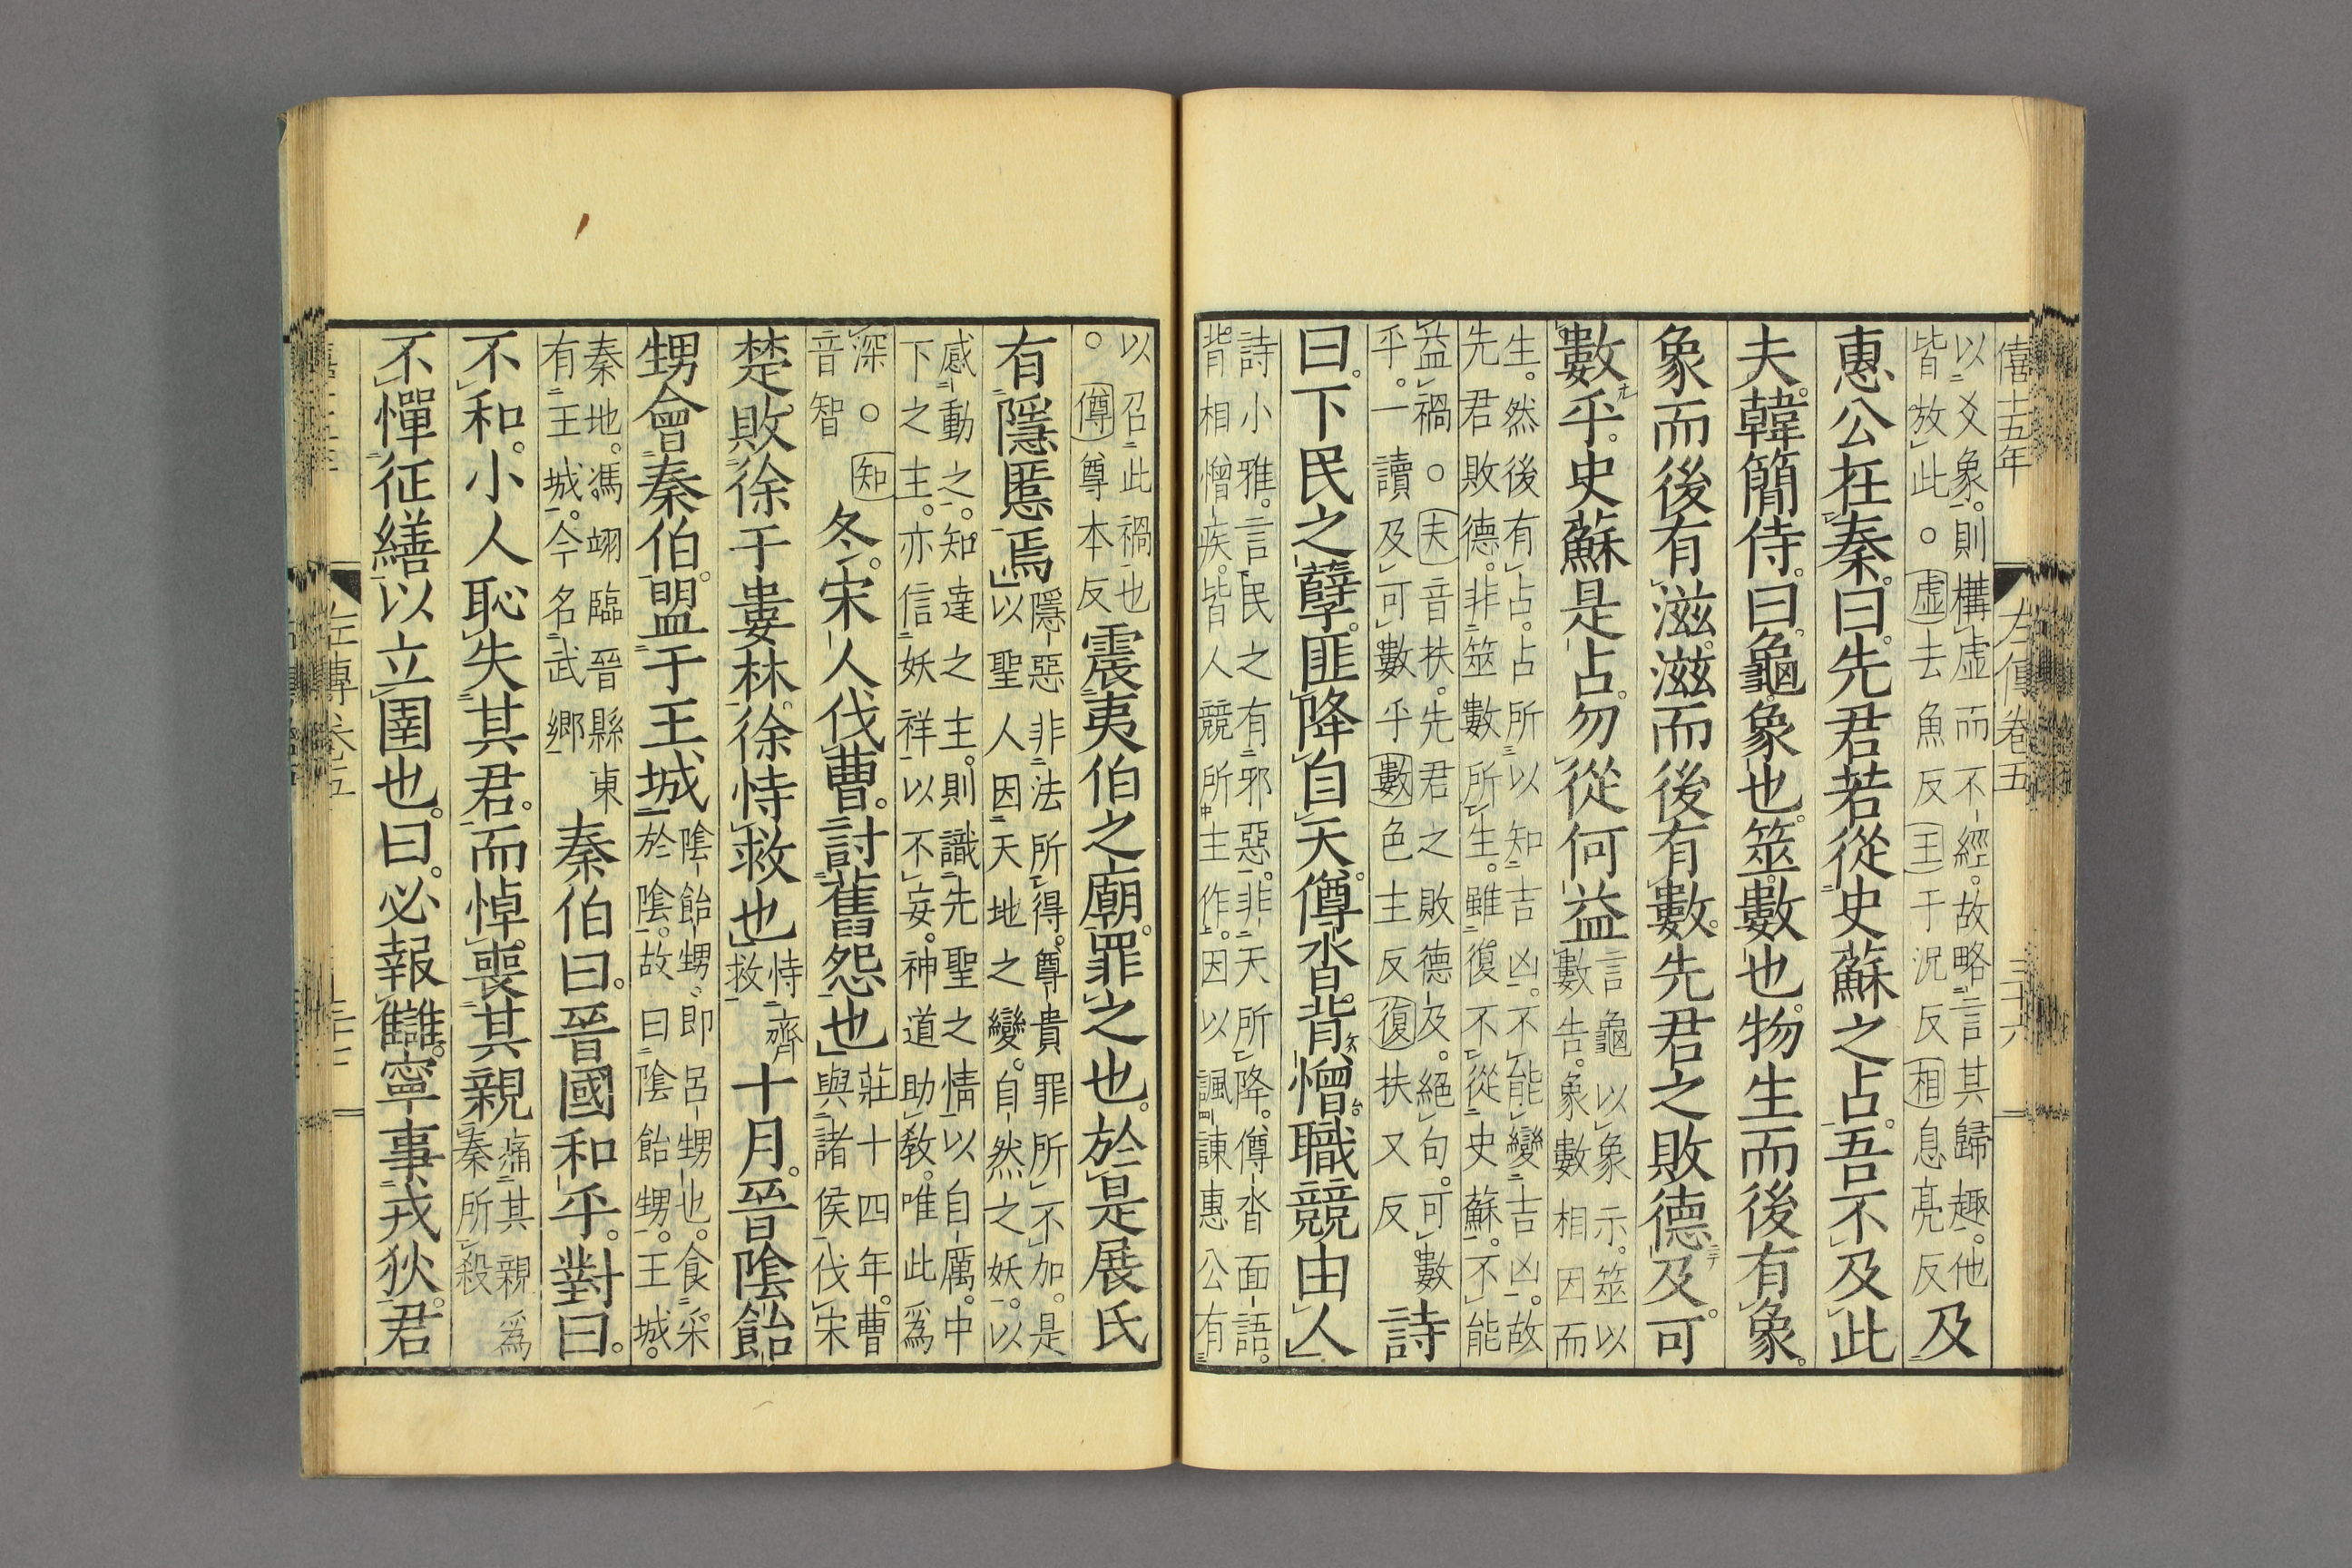 僖十五年　左傳卷五　三十六
以爻象。則構虛而不經。故略言其歸趣。他
皆放此。○虛去魚反王于況反相息亮反
及
惠公在秦。曰。先君若從史蘇之占。吾不及此
夫。韓簡侍。曰。龜。象也。筮。數也。物生而後有象。
象而後有滋。滋而後有數。先君之敗德。及。可
數乎。史蘇是占。勿從何益
言龜以象示。筮以
數告。象數相因而
生。然後有占。占所以知吉凶。不能變吉凶。故
先君敗德。非筮數所生。雖復不從史蘇。不能
益禍。○夫音扶。先君之敗德及。絕句。可數
乎。一讀及可數乎數色主反復扶又反
詩
曰。下民之孽。匪降自天。僔沓。背憎。職競由人
詩小雅。言民之有邪惡。非天所降。僔沓面語。
背相憎疾。皆人競所主作。因以諷諫惠公有
以召此禍也
○僔尊本反
震夷伯之廟。罪之也。於是展氏
有隱慝焉
隱惡非法所得。尊貴罪所不加。是
以聖人因天地之變。自然之妖。以
感動之。知達之主。則識先聖之情以自厲。中
下之主。亦信妖祥以不妄。神道助教。唯此爲
深。○知
音智
冬。宋人伐曹。討舊怨也
莊十四年。曹
與諸侯伐宋
楚。敗徐于婁林。徐恃救也
恃齊
救
十月。晉陰飴
甥會秦伯。盟于王城
陰飴甥即呂甥也。食采
於陰。故曰陰飴甥。王城。
秦地。馮翊臨晉縣東
有王城。今名武鄉
秦伯曰。晉國和乎。對曰。
不和。小人恥失其君。而悼喪其親
痛其親爲
秦所殺
不憚征繕以立圉也。曰。必報讎。寧事戎狄。君
左傳卷五